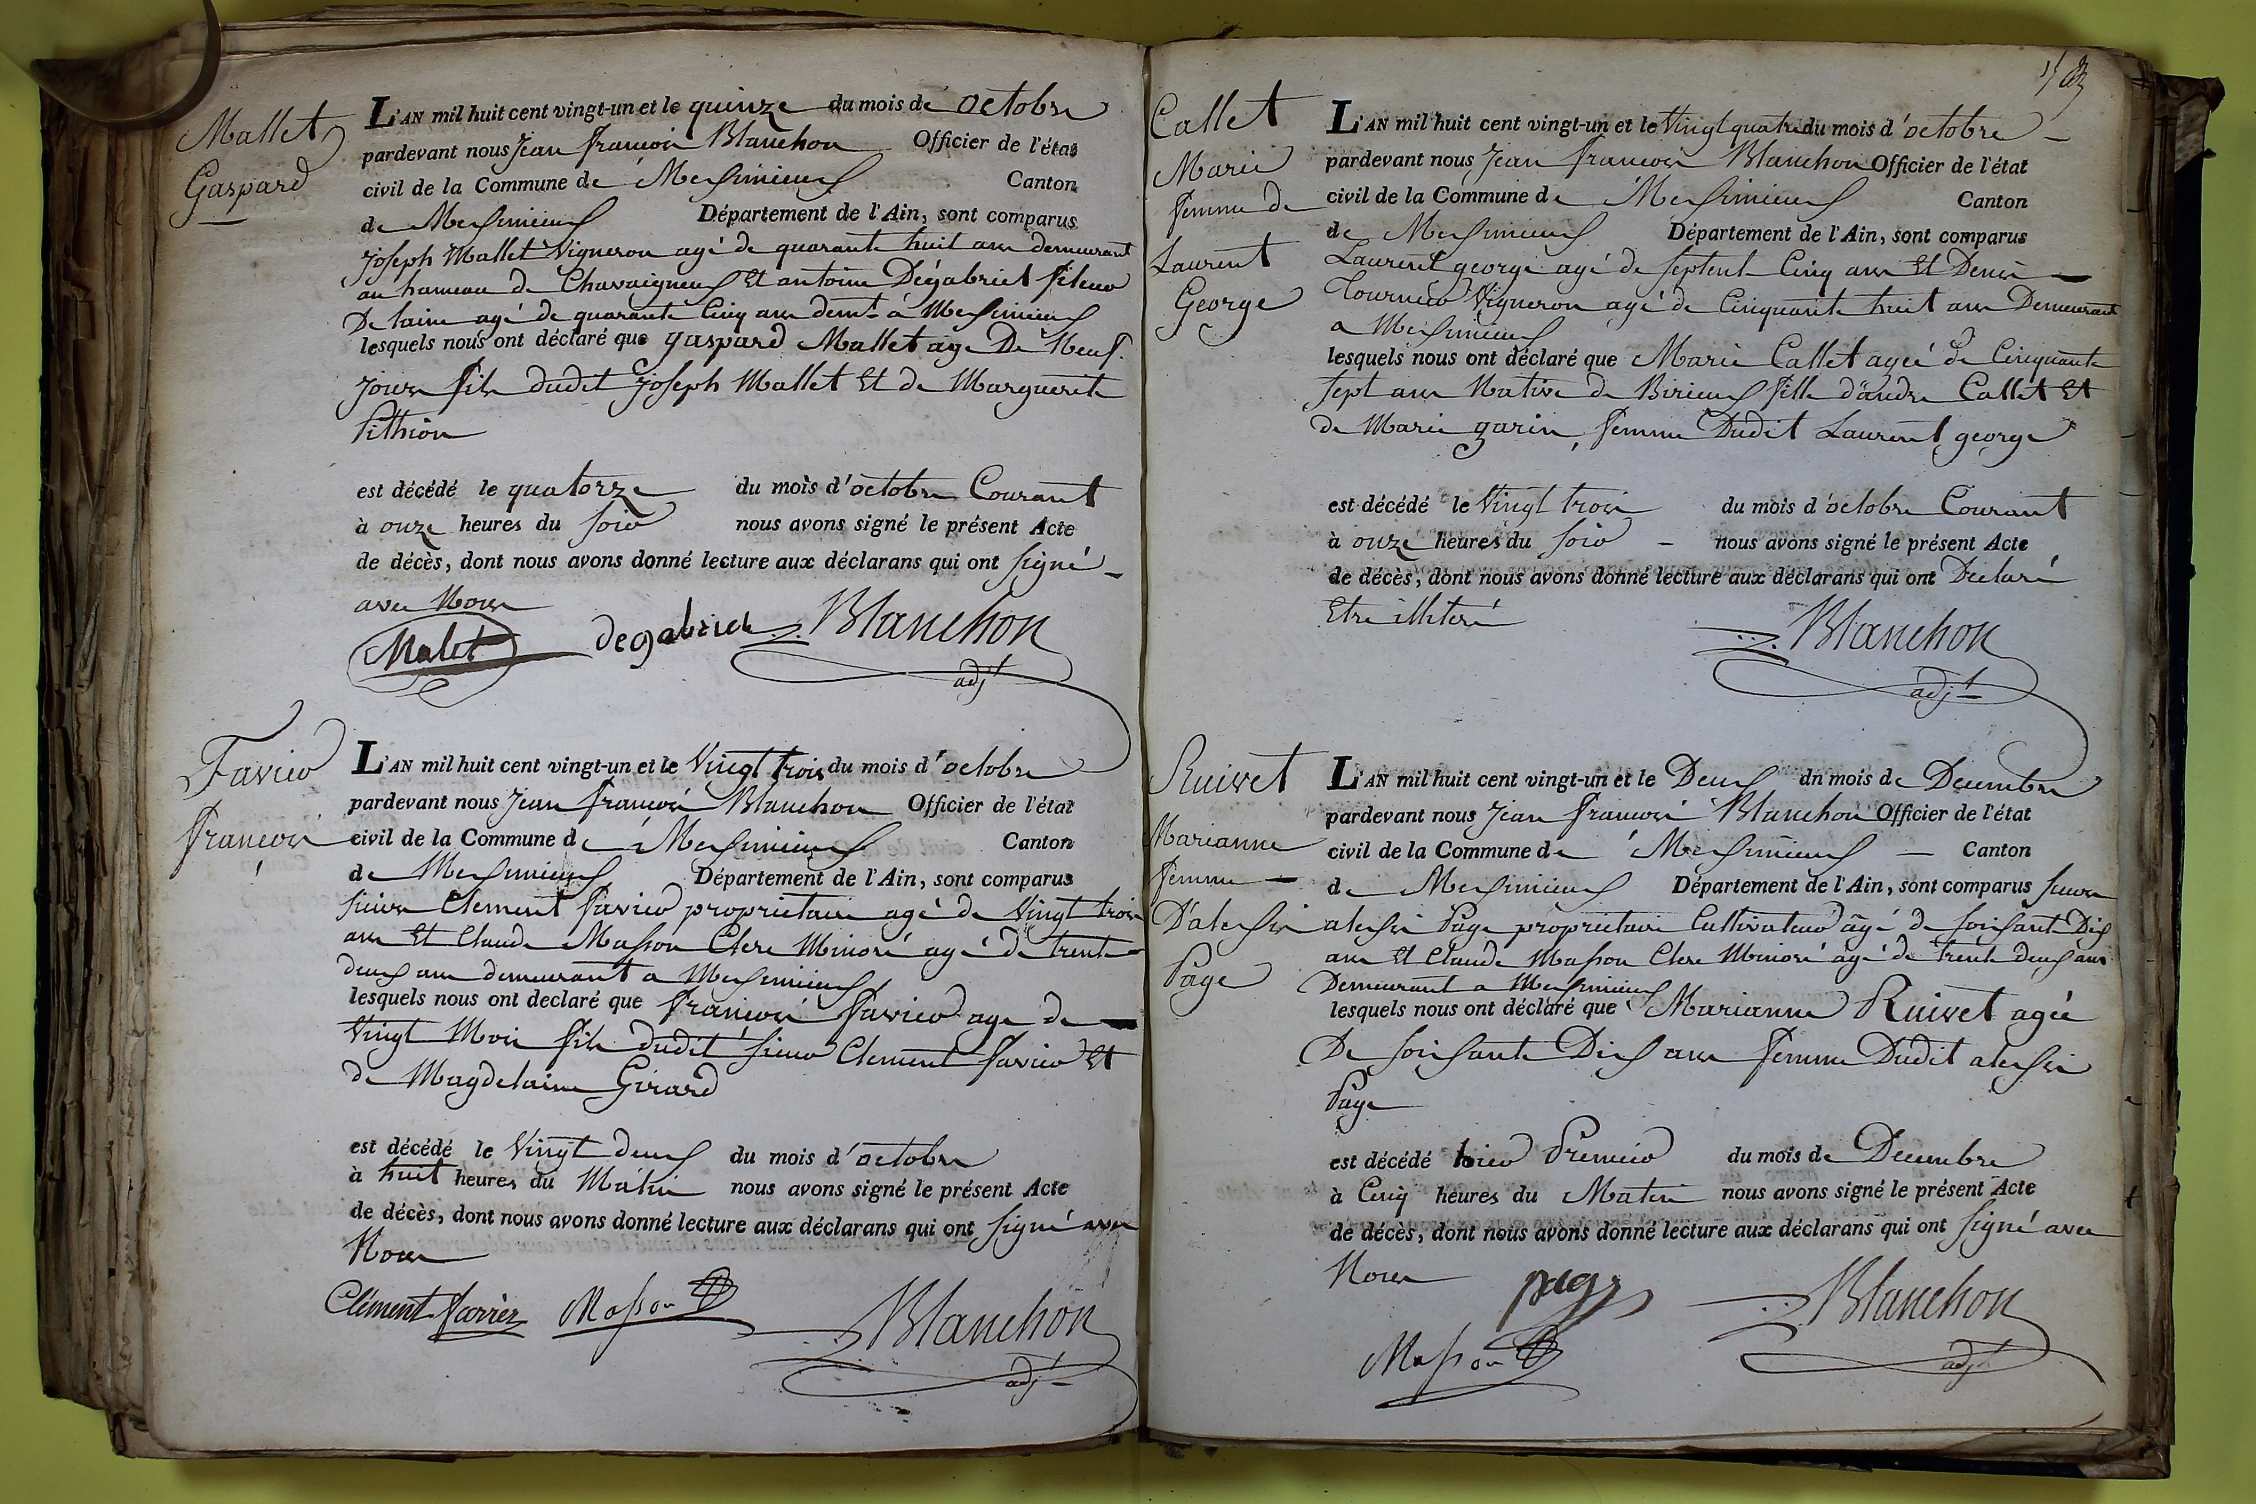 Mallet
Gaspard
L'AN mil huit cent vingt-un et le quinze du mois de octobre
pardevant nous Jean françois Blanchon Officier de l'état
civil de la Commune de Meximieux Canton
de Meximieux Département de l'Ain, sont comparus
Joseph Mallet Vigneron agé de quarante huit ans demeurant
au hameau de Chavaigneux Et antoine Dégabriel fileur
De laine agé de quarante Cinq ans demt à Meximieux
lesquels nous ont déclaré que gaspard Mallet age De Neuf
jours fils dudit Joseph Mallet Et de Marguerite
Pithion
est décédé le quatorze du mois d'octobre Courant
à onze heures du soir nous avons signé le présent Acte
de décès, dont nous avons donné lecture aux déclarans qui ont signé
avec Nous
Malet degabriel Blanchon
adjt
Favier
françois
L'AN mil huit cent vingt-un et le Vingt trois du mois d'octobre
pardevant nous Jean françois Blanchon Officier de l'état
civil de la Commune de Meximieux Canton
de Meximieux Département de l'Ain, sont comparus
sieurs Clement Favier proprietaire agé de Vingt trois
ans Et Claude Masson Clerc Minoré agé de trente
deux ans demeurant a Meximieux
lesquels nous ont declaré que françois favier age de
Vingt Mois fils dudit sieur Clement favier Et
de Magdelaine Girard
est décédé le Vingt deux du mois d'octobre
à huit heures du Matin nous avons signé le présent Acte
de décès, dont nous avons donné lecture aux déclarans qui ont signé avec
Nous
Clément favier Masson Blanchon
adjt
Callet
Marie
femme de
Laurent
George
L'AN mil huit cent vingt-un et le Vingt quatre du mois d'octobre
pardevant nous Jean françois Blanchon Officier de l'état
civil de la Commune de Meximieux Canton
de Meximieux Département de l'Ain, sont comparus
Laurent george agé de septent Cinq ans Et Denis
Tournier Vigneron agé de Cinquante huit ans Demeurant
a Meximieux
lesquels nous ont déclaré que Marie Callet ageé de Cinquante
sept ans Native de Birieux fille d'andre Callet Et
de Marie garin, femme Dudit Laurent george
est décédé le Vingt trois du mois d'octobre Courant
à onze heures du soir nous avons signé le présent Acte
de décès, dont nous avons donné lecture aux déclarans qui ont Declaré
Etre illiteré
Blanchon
adjt
Ruivet
Marianne
femme
D'alexis
Page
L'AN mil huit cent vingt-un et le Deux du mois de Decembre
pardevant nous Jean françois Blanchon Officier de l'état
civil de la Commune de Meximieux Canton
de Meximieux Département de l'Ain, sont comparus sieurs
alexis Page proprietaire Cultivateur âgé de soixante Dix
ans Et Claude Masson Clerc Minoré âgé de trente deux ans
Demeurant a Meximieux
lesquels nous ont déclaré que Marianne Ruivet agée
De soixante Dix ans femme Dudit alexis
Page
est décédé hier Premier du mois de Decembre
à Cinq heures du Matin nous avons signé le présent Acte
de décès, dont nous avons donné lecture aux déclarans qui ont signé avec
Nous
page Blanchon
Masson adjt